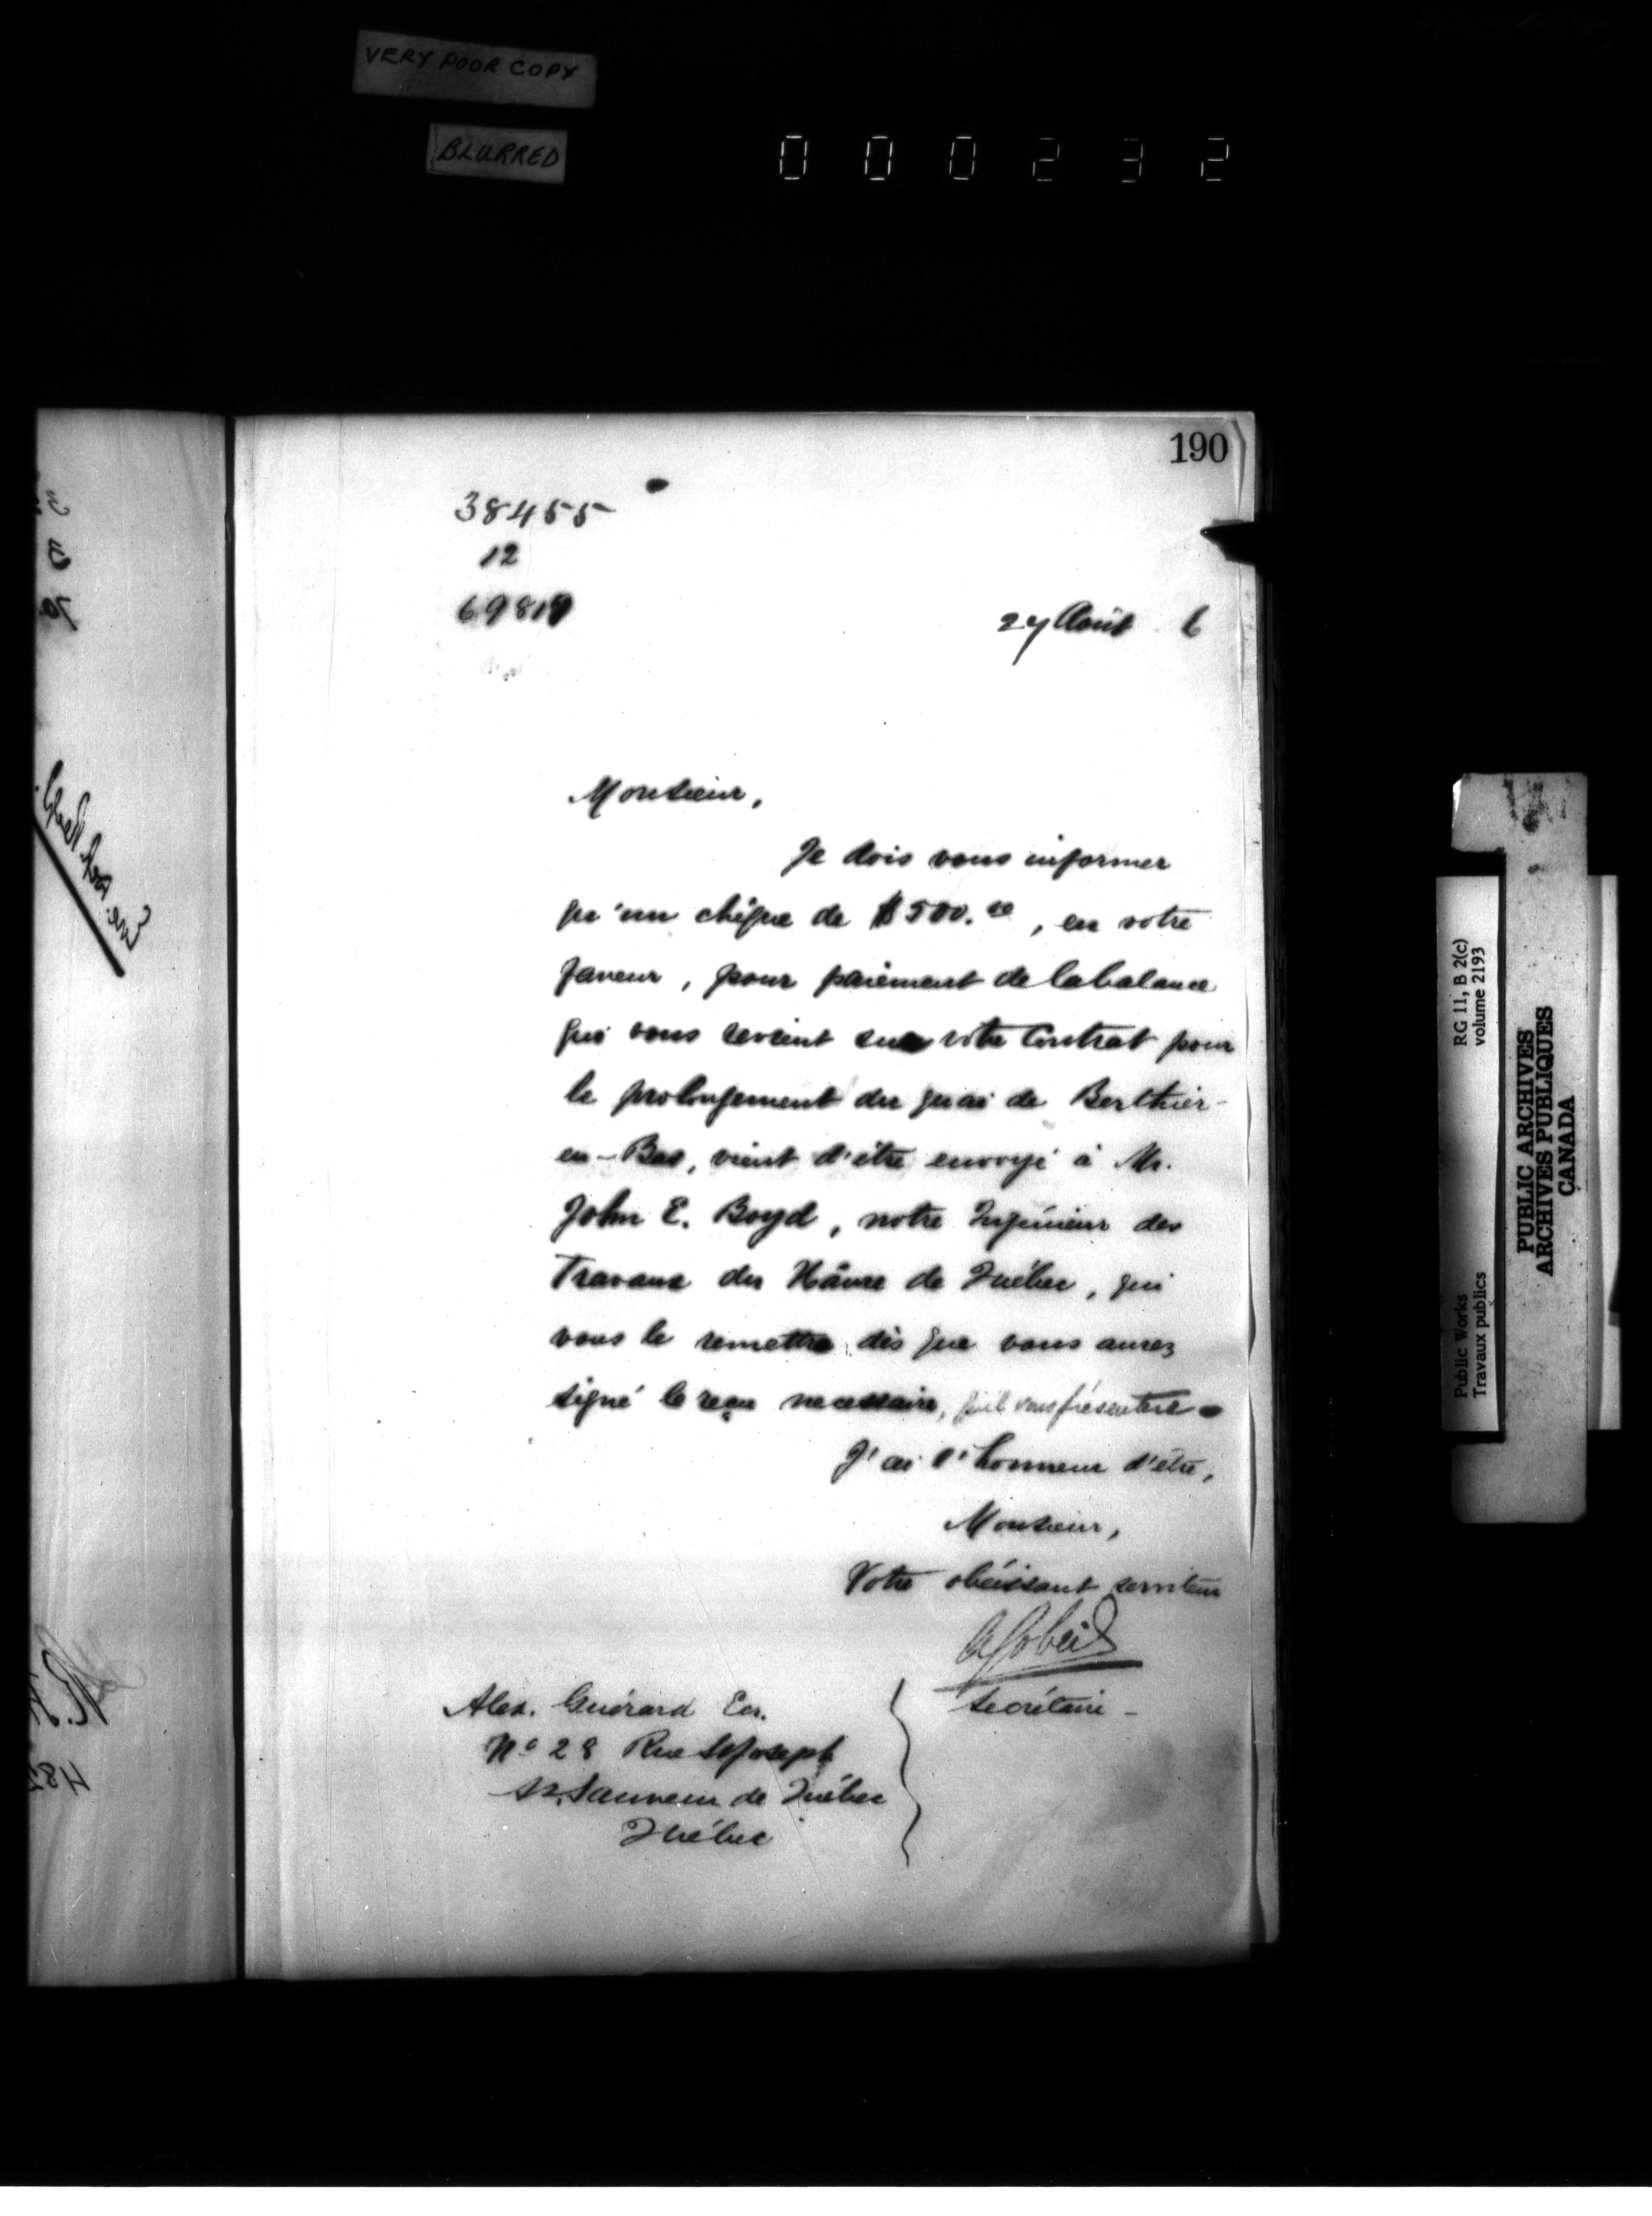 VERY POOR COPY
BLURRED
000232
190
38455
12
69819
27 Août 6
Monsieur,
Je dois vous informer
qu'un chèque de $500.00, en votre
faveur, pour paiement de la balance
qui vous revient sur votre Contrat pour
le prolongement du quai de Berthier-
en-Bas, vient d'être envoyé à Mr.
John E. Boyd, notre Ingénieur des
Travaux du Hâvre de Québec, qui
vous le remettra dès que vous aurez
signé le reçu necessaire, qu'il vous présentera
J'ai l'honneur d'être,
Monsieur,
Votre obéissant serviteur
A Gobeil
Secrétaire -
Alex. Guérard Ecr.
No 28 Rue St Joseph
St. Sauveur de Québec
Québec
Public Works
Travaux publics
RG 11, B 2(c)
volume 2193
PUBLIC ARCHIVES
ARCHIVES PUBLIQUES
CANADA